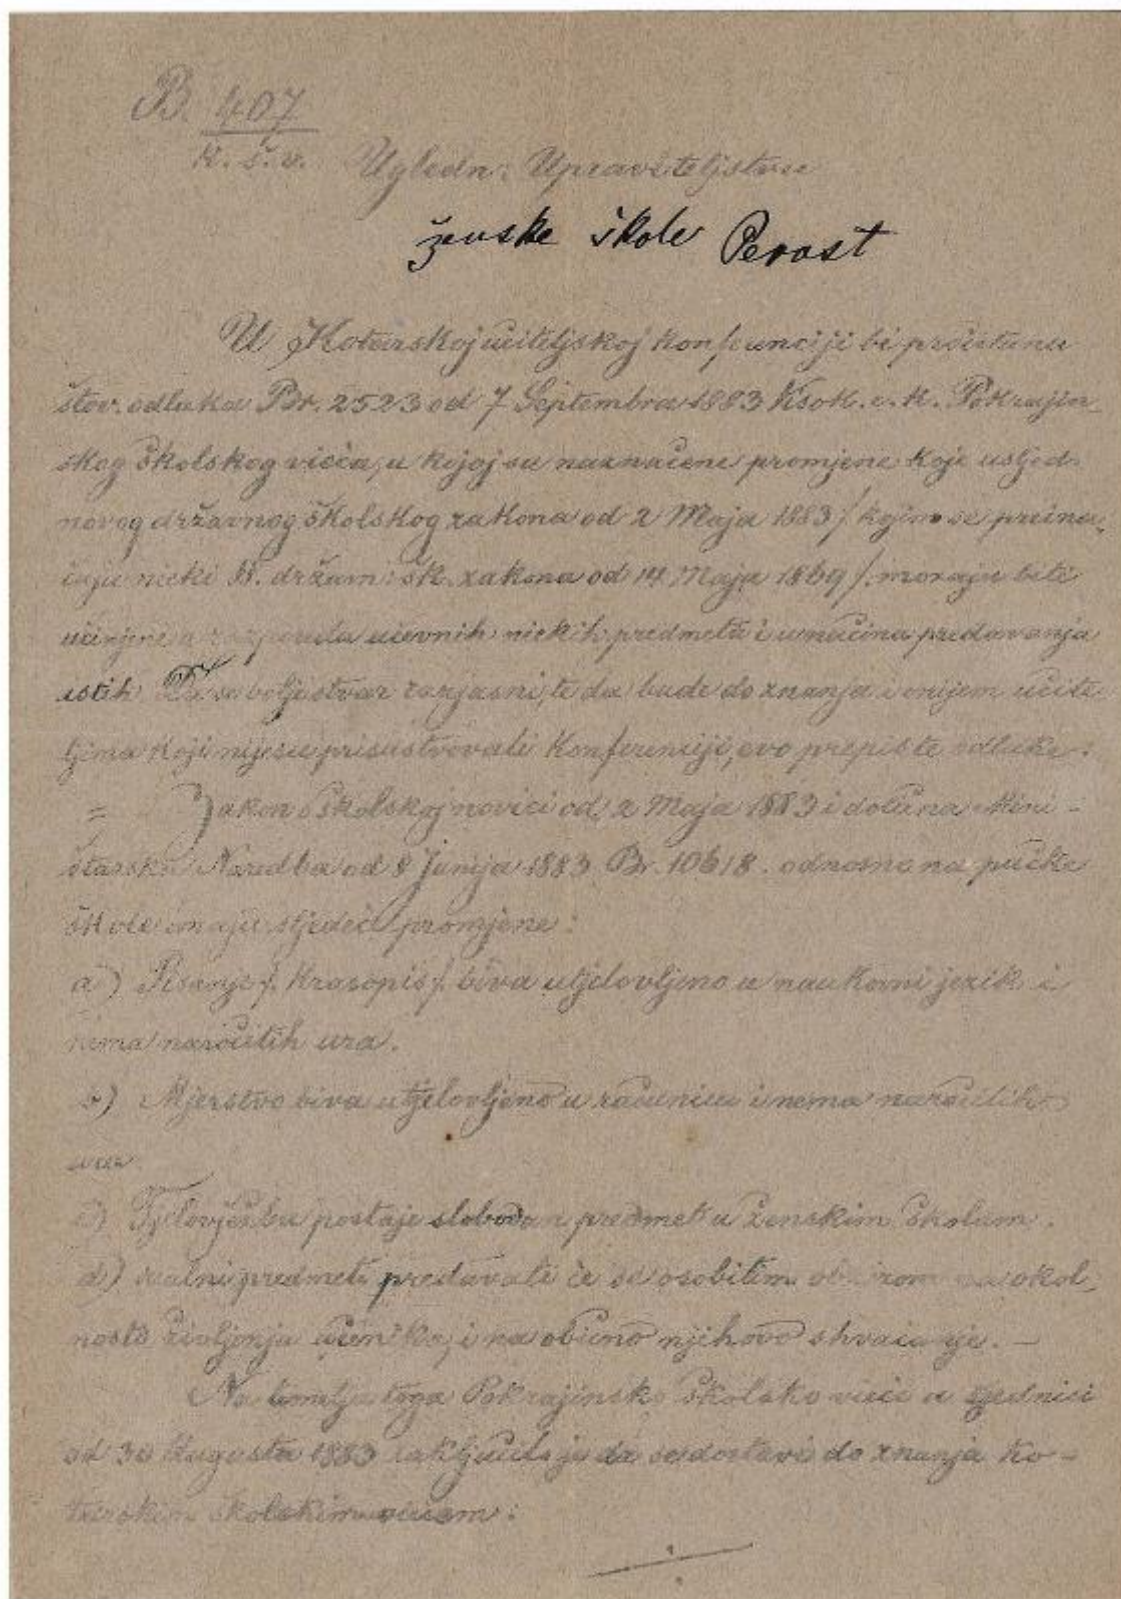 B. 407
K. š. v. Ugledn: Upraviteljstvu
ženske škole Perast
U Kotarskoj učiteljskoj konferenciji bi pročitana
štov. odluka Br. 2523 od 7 Septembra 1883 Visok. c. k. Pokrajin-
skog školskog vieća, u kojoj su naznačene promjene koje usljed
novog državnog školskog zakona od 2 Maja 1883 /. kojim se preina-
čuju nieki §§. držav: šk. zakona od 14 Maja 1869 /. moraju biti
učinjene u razporedu učevnih niekih predmeta i u načinu predavanja
istih. Da se bolje stvar razjasni, te da bude do znanja i onijem učite-
ljima koji nijesu prisustvovali Konferenciji, evo prepis te odluke:
= Zakon o školskoj novici od 2 Maja 1883 i dotična Mini-
starska Naredba od 8 Junija 1883 Br. 10618. odnosno na pučke
škole imaju sljedeće promjene:
a) Pisanje /. Krasopis /. biva utjelovljeno u naukovni jezik i
nema naročitih ura.
b) Mjerstvo biva utjelovljeno u računicu i nema naročitih
ura.
c) Tjelovježba postaje slobodan predmet u ženskim školam.
d) realni predmeti predavati će se osobitim obzirom na okol-
nosti življenja učenika, i na obično njihovo shvaćanje. —
Na temelju toga Pokrajinsko Školsko vieće u sjednici
od 30 Augusta 1883 zaključilo je da se dostavi do znanja Ko-
tarskim školskim viećem: